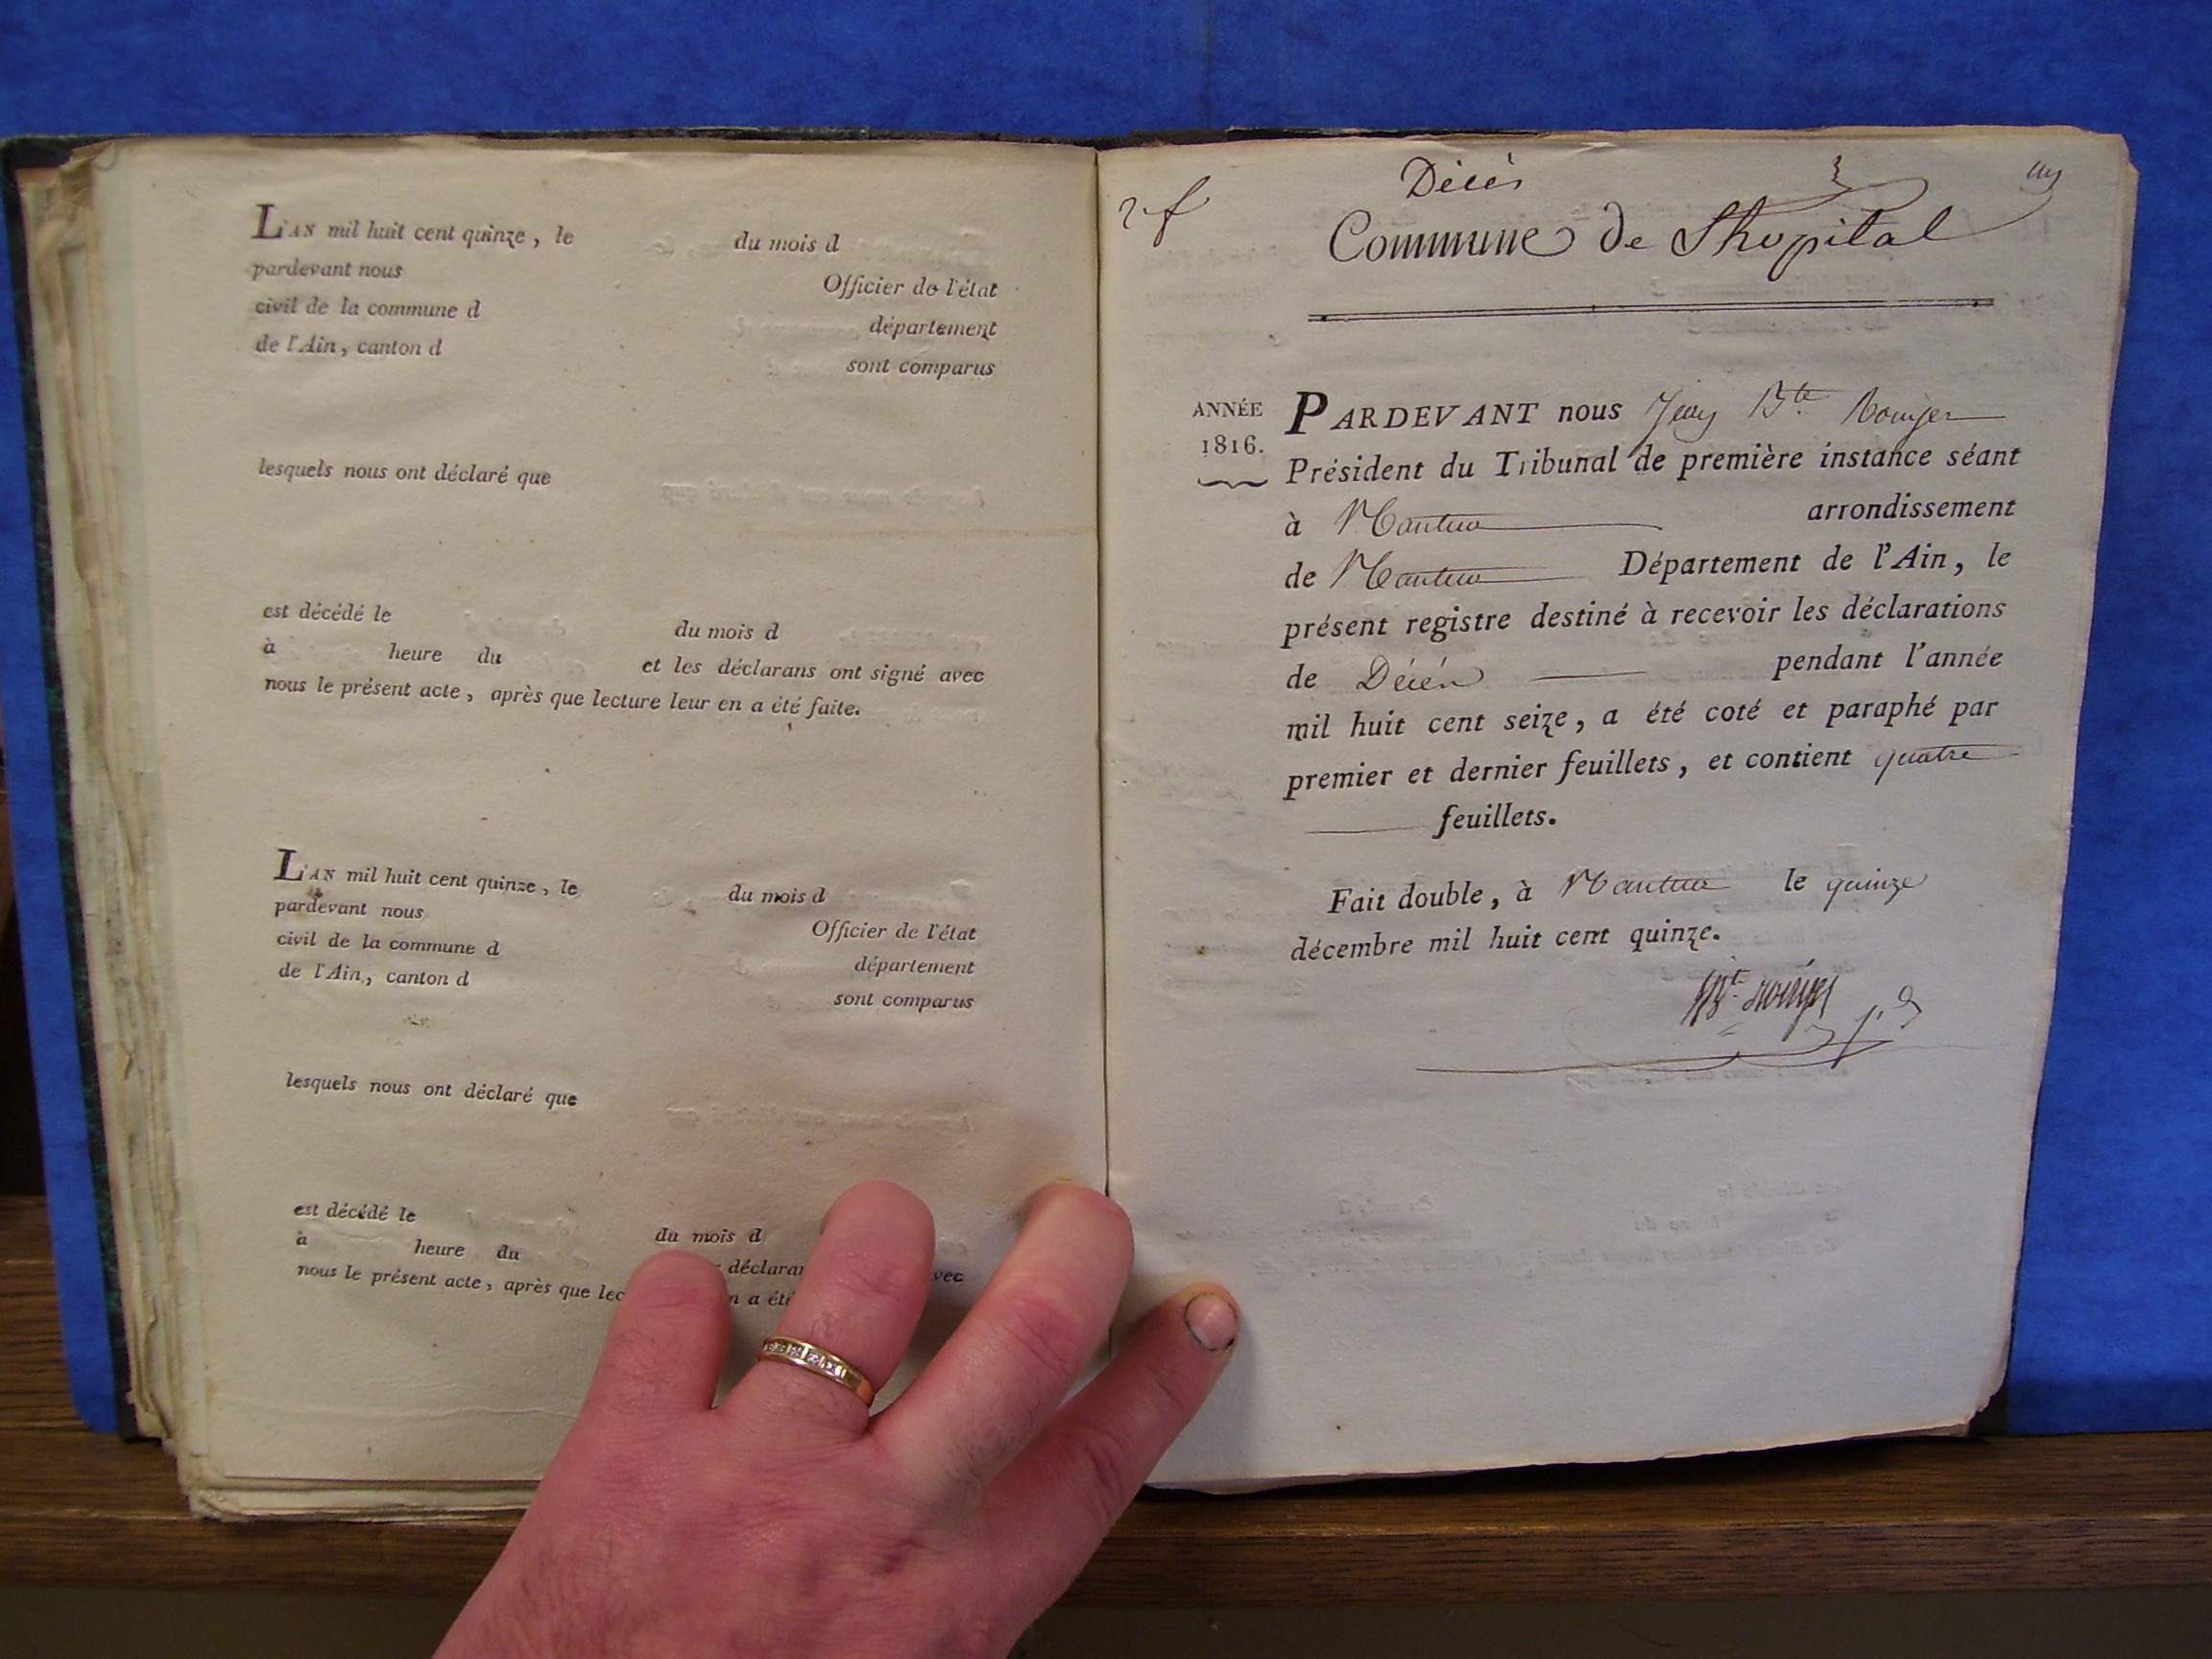 L'AN mil huit cent quinze, le du mois d
pardevant nous Officier de l'état
civil de la commune d département
de l'Ain, canton d sont comparus
lesquels nous ont déclaré que
est décédé le du mois d
à heure du et les déclarans ont signé avec
nous le présent acte, après que lecture leur en a été faite.
L'AN mil huit cent quinze, le du mois d
pardevant nous Officier de l'état
civil de la commune d département
de l'Ain, canton d sont comparus
lesquels nous ont déclaré que
est décédé le du mois d
à heure du déclara vec
nous le présent acte, après que lec n a été
Décès
Commune de Lhopital
ANNÉE
1816.
PARDEVANT nous Jean Bte Rouyer
Président du Tribunal de première instance séant
à Nantua arrondissement
de Nantua Département de l'Ain, le
présent registre destiné à recevoir les déclarations
de Décès pendant l'année
mil huit cent seize, a été coté et paraphé par
premier et dernier feuillets, et contient quatre
feuillets.
Fait double, à Nantua le quinze
décembre mil huit cent quinze.